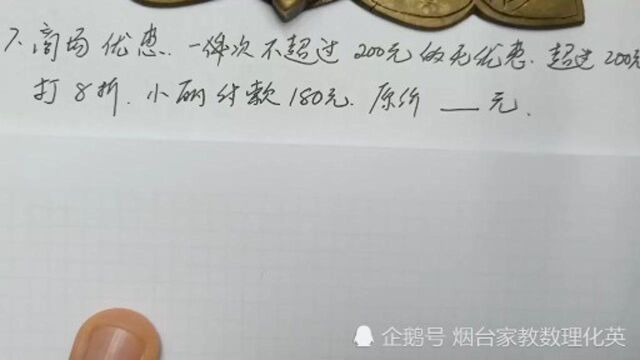 7. 商场优惠. 一律次不超过200元的无优惠. 超过200元
打8折. 小丽付款180元. 原价 ___ 元.
企鹅号 烟台家教数理化英